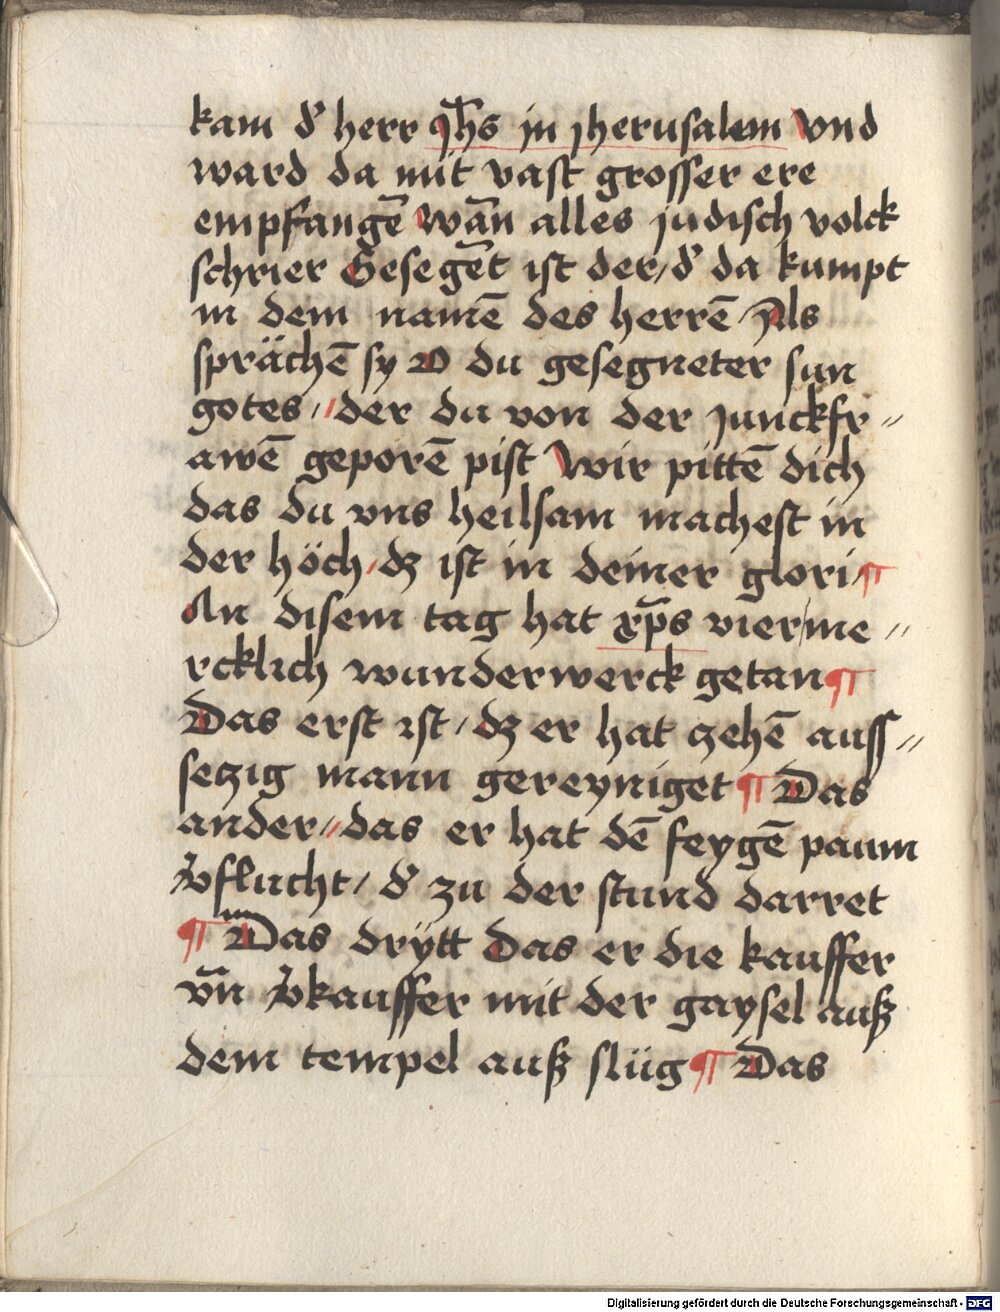 kam d' herr Jh̄s jn jherusalem Vnd
ward da mit vast grosser ere
empfangē Wān alles judisch volck
schrier Gesegēt ist der / d' da kumpt
in dem namē des herrē / Als
sprächē sy O du gesegneter sun
gotes // der du von der junckfr〃
awē geporē pist Wir pittē dich
das du vns heilsam machest in
der höch / dz ist in deiner glori / ¶
An disem tag hat xp̄s vier me〃
rcklich wunderwerck getan ¶
Das erst ist / dz er hat zehē auss〃
seczig mann gereyniget ¶ Das
ander // das er hat dē feygē paum
v'flucht / d' zu der stund darret
¶ Das drytt Das er die kauffer
vn̄ v'kauffer mit der gaysel auß
dem tempel auß slüg ¶ Das
Digitalisierung gefördert durch die Deutsche Forschungsgemeinschaft - DFG